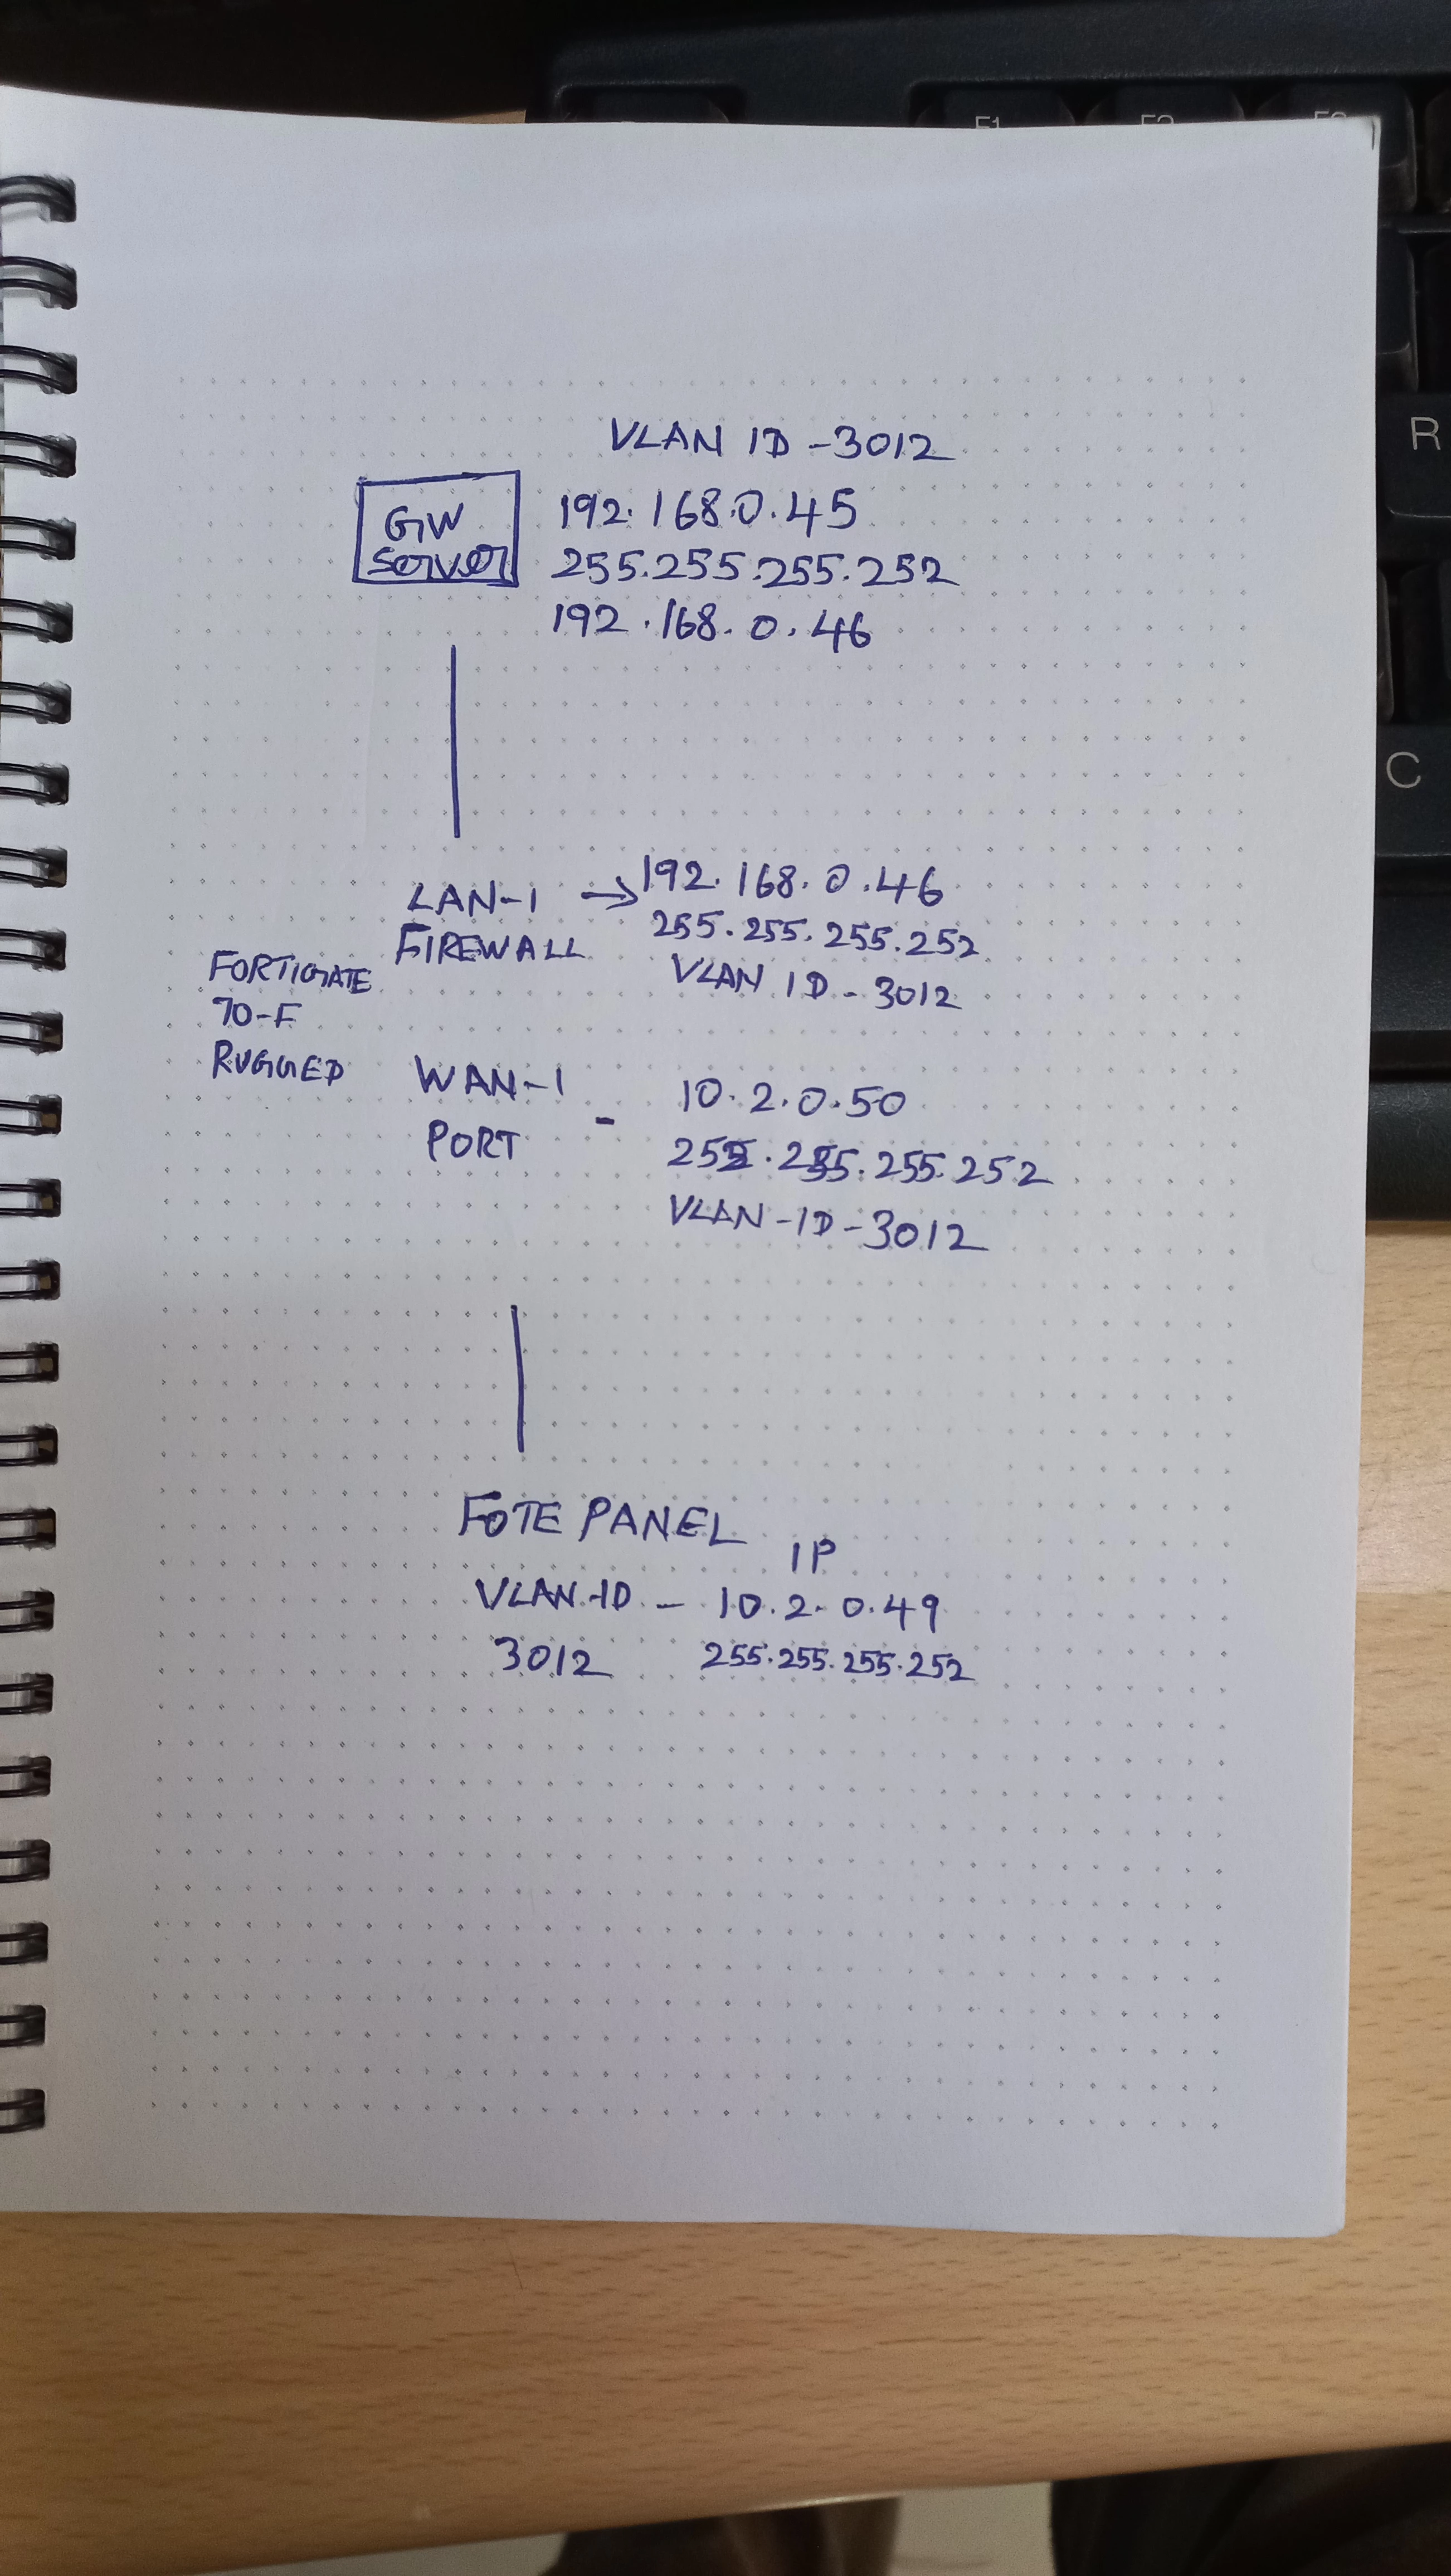 VLAN ID - 3012
GW
Server
192.168.0.45
255.255.255.252
192.168.0.46
LAN-1 → 192.168.0.46
FIREWALL 255.255.255.252
VLAN ID - 3012
FORTIGATE
70-F
RUGGED
WAN-1
PORT - 10.2.0.50
255.255.255.252
VLAN-ID-3012
FOTE PANEL
IP
VLAN-ID - 10.2.0.49
3012 255.255.255.252
F1
F2
R
C